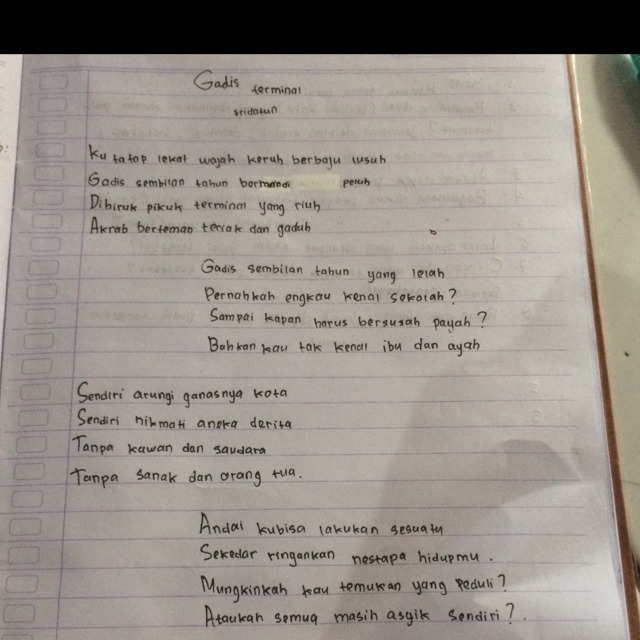 Gadis terminal
sridatun
Ku tatap lekat wajah keruh berbaju lusuh
Gadis sembilan tahun bermandi peluh
Dihiruk pikuk terminal yang riuh
Akrab berteman teriak dan gaduh
Gadis sembilan tahun yang lelah
Pernahkah engkau kenal sekolah?
Sampai kapan harus bersusah payah?
Bahkan kau tak kenal ibu dan ayah
Sendiri arungi ganasnya kota
Sendiri nikmati aneka derita
Tanpa kawan dan saudara
Tanpa sanak dan orang tua.
Andai kubisa lakukan sesuatu
Sekedar ringankan nestapa hidupmu.
Mungkinkah kau temukan yang peduli?
Ataukah semua masih asyik sendiri?.